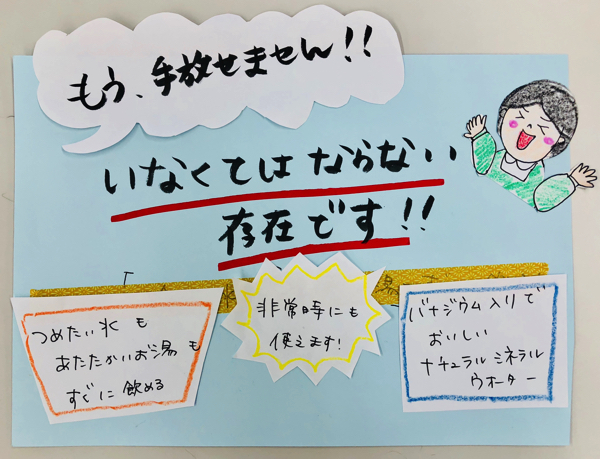 もう、手放せません!!
いなくてはならない
存在です!!
つめたい水も
あたたかいお湯も
すぐに飲める
非常時にも
使えます!
バナジウム入りで
おいしい
ナチュラルミネラル
ウオーター